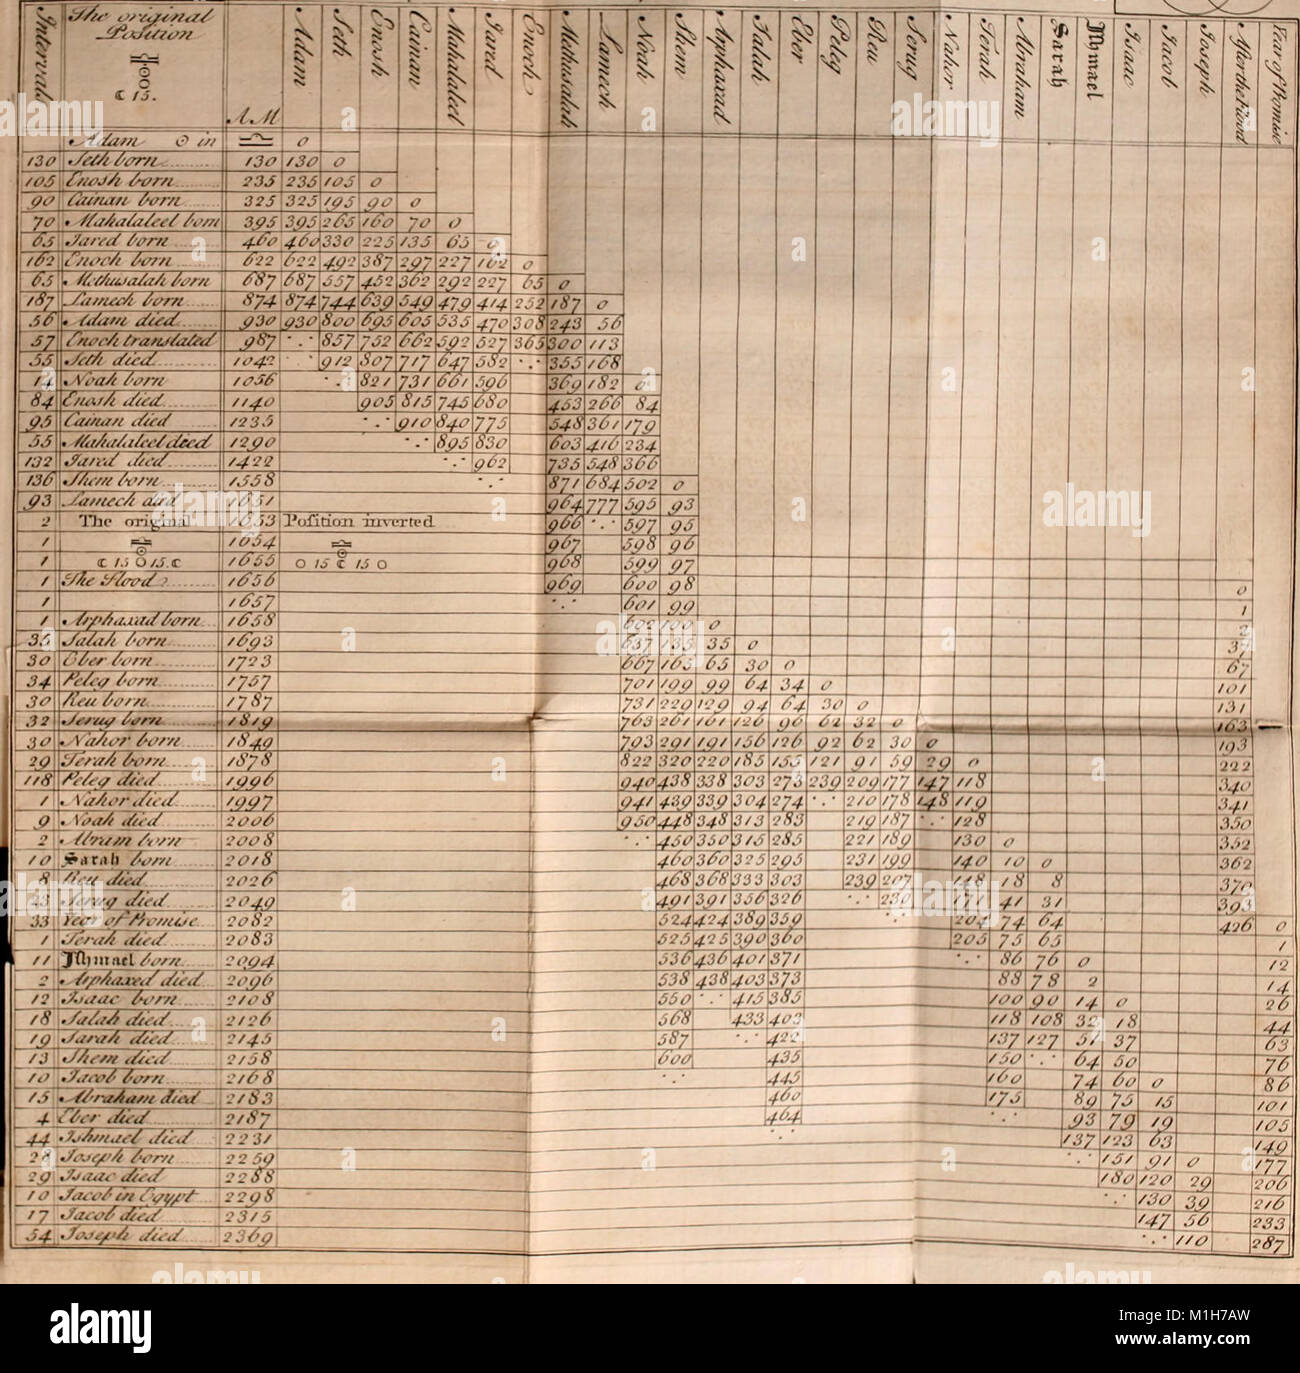 Intervals The original Position A.M Adam Seth Enosh Cainan Mahalaleel Jared Enoch Methusalah Lamech Noah Shem Arphaxad Salah Eber Peleg Reu Serug Nahor Terah Abraham Sarah Ishmael Isaac Jacob Joseph After the Flood Year of Promise
☾ 15.
Adam ☉ in ♎ 0
130 Seth born 130 130 0
105 Enosh born 235 235 105 0
90 Cainan born 325 325 195 90 0
70 Mahalaleel born 395 395 265 160 70 0
65 Jared born 460 460 330 225 135 65 0
162 Enoch born 622 622 492 387 297 227 162 0
65 Methusalah born 687 687 557 452 362 292 227 65 0
187 Lamech born 874 874 744 639 549 479 414 252 187 0
56 Adam died 930 930 800 695 605 535 470 308 243 56
57 Enoch translated 987 ∵ 857 752 662 592 527 365 300 113
55 Seth died 1042 912 807 717 647 582 ∵ 355 168
14 Noah born 1056 ∵ 821 731 661 596 369 182 0
84 Enosh died 1140 905 815 745 680 453 266 84
95 Cainan died 1235 ∵ 910 840 775 548 361 179
55 Mahalaleel died 1290 ∵ 895 830 603 416 234
132 Jared died 1422 ∵ 962 735 548 366
136 Shem born 1558 ∵ 871 684 502 0
93 Lamech died 1651 964 777 595 93
2 The original 1653 Position inverted 966 ∵ 597 95
1 ♎ 1654 ♎ 967 598 96
1 ☾ 15 ☉ 15. ☾ 1655 ○ 15 ☾ 15 ○ 968 599 97
1 The Flood 1656 969 600 98 0
1 1657 ∵ 601 99 1
1 Arphaxad born 1658 602 100 0 2
35 Salah born 1693 637 135 35 0 37
30 Eber born 1723 667 165 65 30 0 67
34 Peleg born 1757 701 199 99 64 34 0 101
30 Reu born 1787 731 229 129 94 64 30 0 131
32 Serug born 1819 763 261 161 126 96 62 32 0 163
30 Nahor born 1849 793 291 191 156 126 92 62 30 0 193
29 Terah born 1878 822 320 220 185 155 121 91 59 29 0 222
118 Peleg died 1996 940 438 338 303 273 239 209 177 147 118 340
1 Nahor died 1997 941 439 339 304 274 ∵ 210 178 148 119 341
9 Noah died 2006 950 448 348 313 283 219 187 ∵ 128 350
2 Abram born 2008 ∵ 450 350 315 285 221 189 130 0 352
10 Sarah born 2018 460 360 325 295 231 199 140 10 0 362
8 Reu died 2026 468 368 333 303 239 207 148 18 8 370
23 Serug died 2049 491 391 356 326 ∵ 230 171 41 31 393
33 Year of Promise 2082 524 424 389 359 ∵ 204 74 64 426 0
1 Terah died 2083 525 425 390 360 205 75 65 1
11 Ishmael born 2094 536 436 401 371 ∵ 86 76 0 12
2 Arphaxed died 2096 538 438 403 373 88 78 2 14
12 Isaac born 2108 550 ∵ 415 385 100 90 14 0 26
18 Salah died 2126 568 433 403 118 108 32 18 44
19 Sarah died 2145 587 ∵ 422 137 127 51 37 63
13 Shem died 2158 600 435 150 ∵ 64 50 76
10 Jacob born 2168 ∵ 445 160 74 60 0 86
15 Abraham died 2183 460 175 89 75 15 101
4 Eber died 2187 464 ∵ 93 79 19 105
44 Ishmael died 2231 ∵ 137 123 63 149
28 Joseph born 2259 ∵ 151 91 0 177
29 Isaac died 2288 180 120 29 206
10 Jacob in Egypt 2298 ∵ 130 39 216
17 Jacob died 2315 147 56 233
54 Joseph died 2369 ∵ 110 287
alamy
Image ID: M1H7AW
www.alamy.com